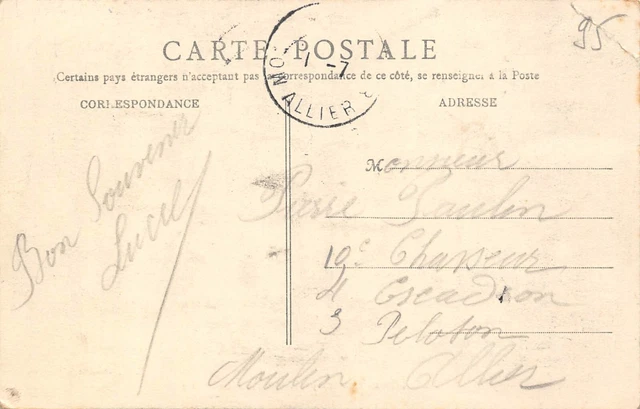 95
CARTE POSTALE
1-7
ALLIER
Certains pays étrangers n'acceptant pas la correspondance de ce côté, se renseigner à la Poste
CORRESPONDANCE
ADRESSE
Bon Souvenir
Lucie
Monsieur
Pierre Paulin
19e Chasseur
4 Escadron
3 Peloton
Moulin Allier